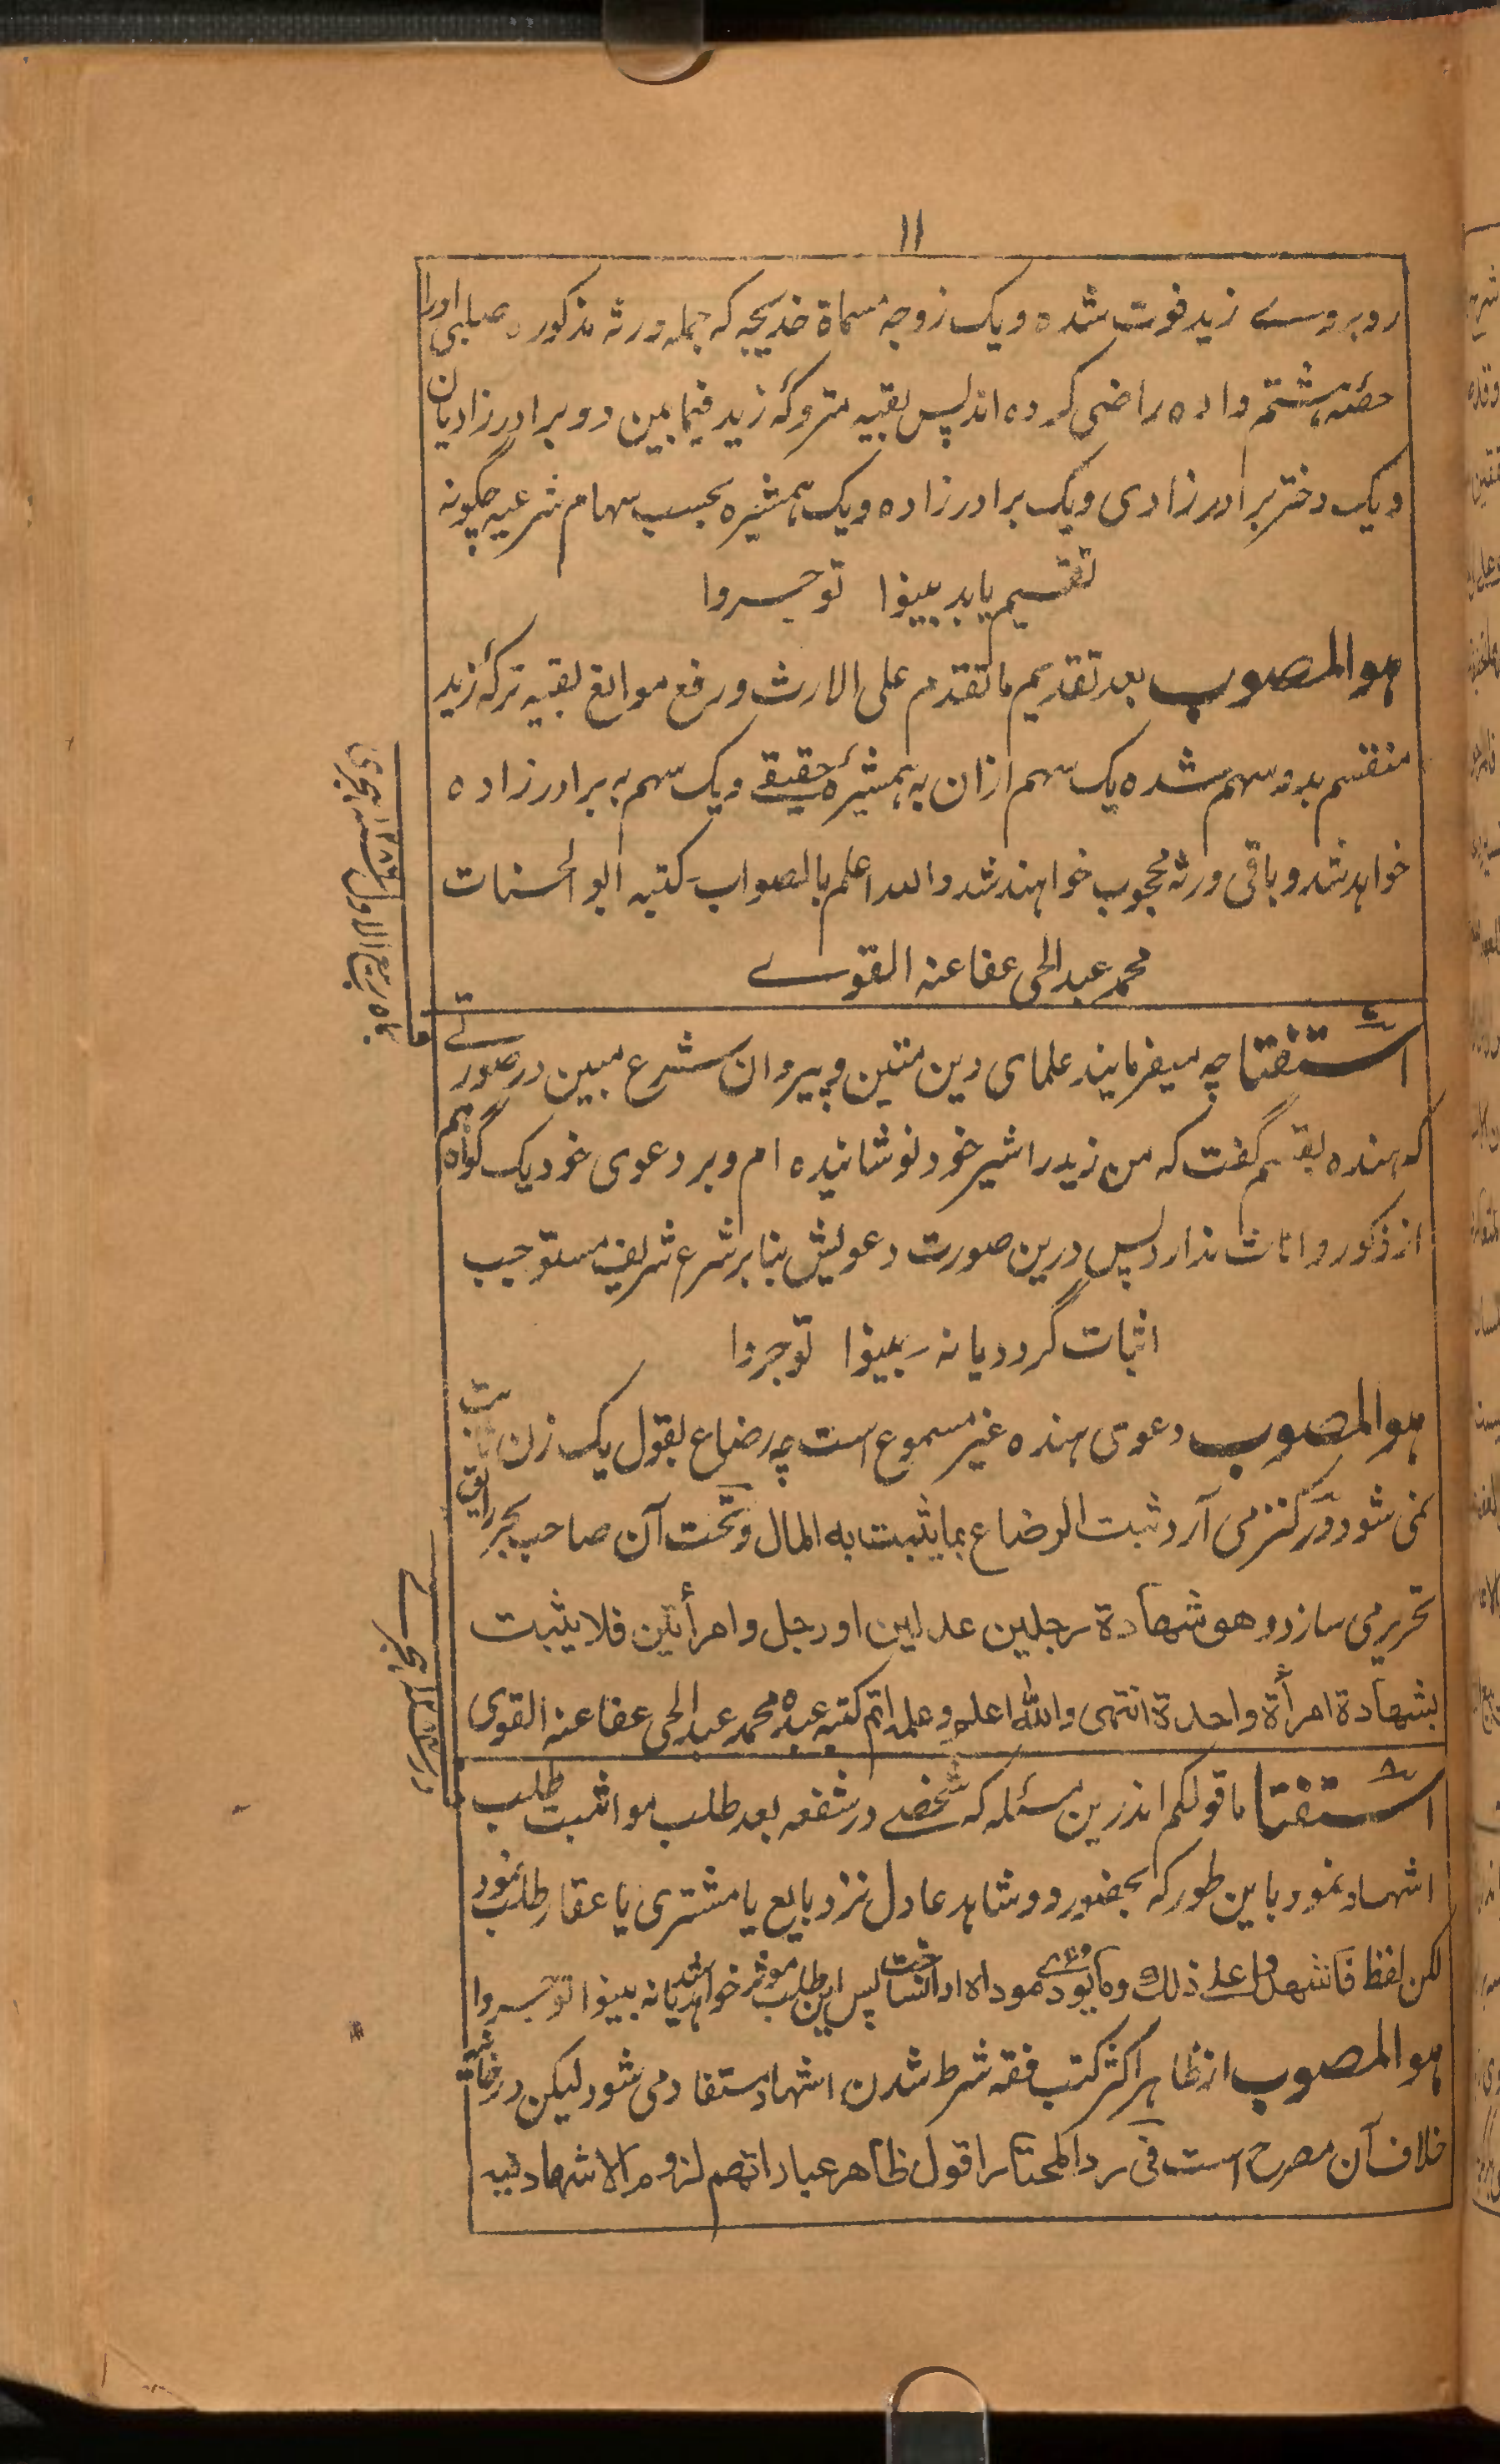 ۱۱
روبروے زید فوت شده ویک زوجہ مسماة خدیجہ کہ جملہ ورثہ مذکوره صلبی اورا
حصئہ ہشتم داده راضی کرده اند پس بقیہ متروکۂ زید فیمابین دو برادرزادیان
ویک دختر برادرزادی ویک برادرزاده ویک ہمشیره بحسب سہام شرعیہ چگونہ
تقسیم یابد بینوا توجروا
ہوالمصوب بعد تقدیم ماتقدم علی الارث ورفع موانع بقیہ ترکۂ زید
منقسم بدو سہم شده یک سہم ازان بہ ہمشیرۂ حقیقے ویک سہم بہ برادرزاده
خواہد شد وباقی ورثہ محجوب خواہند شد والله اعلم بالصواب کتبہ ابو الحسنات
محمد عبدالحی عفا عنہ القوے
استفتا چہ میفرمایند علمای دین متین و پیروان شرع مبین در صورتے
کہ ہنده بقسم گفت کہ من زید را شیر خود نوشانیده ام وبر دعوی خود یک گواه ہم
از ذکور واناث ندارد پس درین صورت دعویش بنابر شرع شریف مستوجب
اثبات گردد یا نہ بینوا توجروا
ہوالمصوب دعوی ہنده غیر مسموع است چہ رضاع بقول یک زن ثابت
نمی شود در کنز می آرد ثبت الرضاع بما یثبت به المال وتحت آن صاحب بحر رایق
تحریر می سازد وهو شهادة رجلین عدلین او رجل وامرأتین فلا یثبت
بشهادة امرأة واحدة انتهی والله اعلم وعلمہ اتم کتبہ عبده محمد عبدالحی عفا عنہ القوی
استفتا ما قولکم اندرین مسئلہ کہ شخصے در شفعہ بعد طلب مواثبت طلب
اشہاد نمود باین طور کہ بحضور دو شاہد عادل نزد بایع یا مشتری یا عقار طلب نمود
لکن لفظ فاشهدوا علی ذلك پس این طلب موثر خواہد شد یانہ بینوا توجروا
ہوالمصوب از ظاہر اکثر کتب فقہ شرط شدن اشہاد مستفاد می شود لیکن در
خلاف آن مصرح است فی رد المحتار اقول ظاهر عباراتهم لزوم الاشهاد فیہ